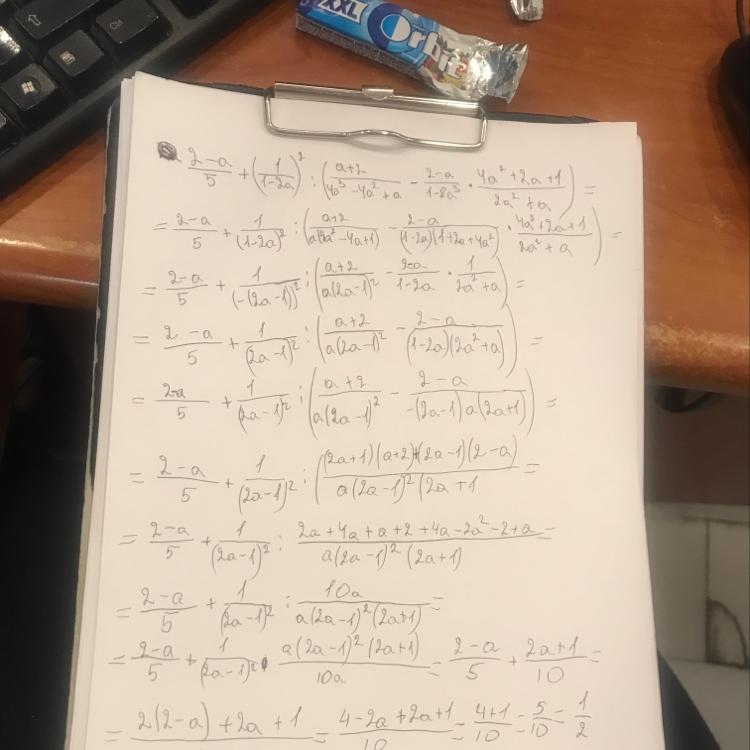 XXL Orbit
(2-a)/5 + (1/(1-2a))² : ((a+2)/(4a³-4a²+a) - (2-a)/(1-8a³) · (4a²+2a+1)/(2a²+a)) =
= (2-a)/5 + 1/(1-2a)² : ((a+2)/(a(4a²-4a+1)) - (2-a)/((1-2a)(1+2a+4a²)) · (4a²+2a+1)/(2a²+a)) =
= (2-a)/5 + 1/(-(2a-1))² : ((a+2)/(a(2a-1)²) - (2-a)/(1-2a) · 1/(2a²+a)) =
= (2-a)/5 + 1/(2a-1)² : ((a+2)/(a(2a-1)²) - (2-a)/((1-2a)(2a²+a))) =
= (2-a)/5 + 1/(2a-1)² : ((a+2)/(a(2a-1)²) - (2-a)/(-(2a-1)a(2a+1))) =
= (2-a)/5 + 1/(2a-1)² : (((2a+1)(a+2)+(2a-1)(2-a))/(a(2a-1)²(2a+1) =
= (2-a)/5 + 1/(2a-1)² : (2a+4a+a+2+4a-2a²-2+a)/(a(2a-1)²(2a+1)) =
= (2-a)/5 + 1/(2a-1)² : 10a/(a(2a-1)²(2a+1)) =
= (2-a)/5 + 1/(2a-1)² · (a(2a-1)²(2a+1))/10a = (2-a)/5 + (2a+1)/10 =
= (2(2-a)+2a+1)/ = (4-2a+2a+1)/10 = (4+1)/10 = 5/10 = 1/2